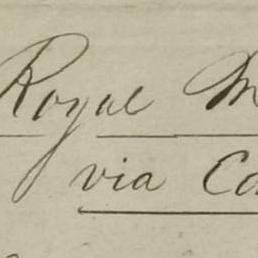 Royal M
via Co